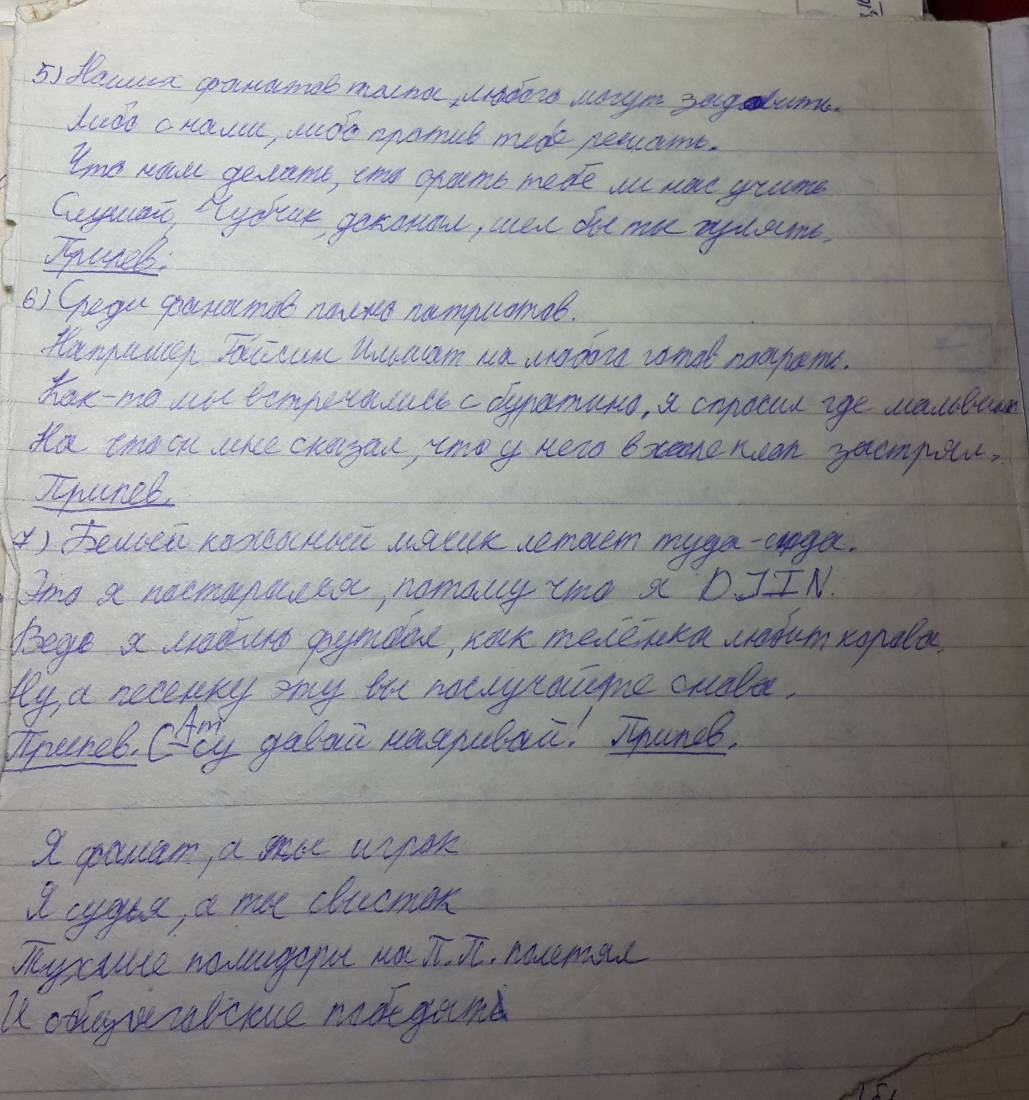 5) Наших фанатов толпа, любого могут задавить.
Либо с нами, либо против тебе решать.
Что нам делать, что орать тебе ли нас учить
Слушай, Чубчик, доканал, шел бы ты гулять.
Припев:
6) Среди фанатов полно патриотов.
Например Гайсин Ильшат на любого готов поорать.
Как-то мы встречались с буратино, я спросил где мальвина
На что он мне сказал, что у него в жопе клоп застрял.
Припев.
7) Белый кожаный мячик летает туда-сюда.
Это я постарался, потому что я DJIN.
Ведь я люблю футбол, как телёнка любит корова.
Ну, а песенку эту вы послучайте снова.
Припев. (Am су давай наяривай! Припев.
Я фанат, а ты игрок
Я судья, а ты свисток
Тухлые помидоры на П.П. полетял
И победят